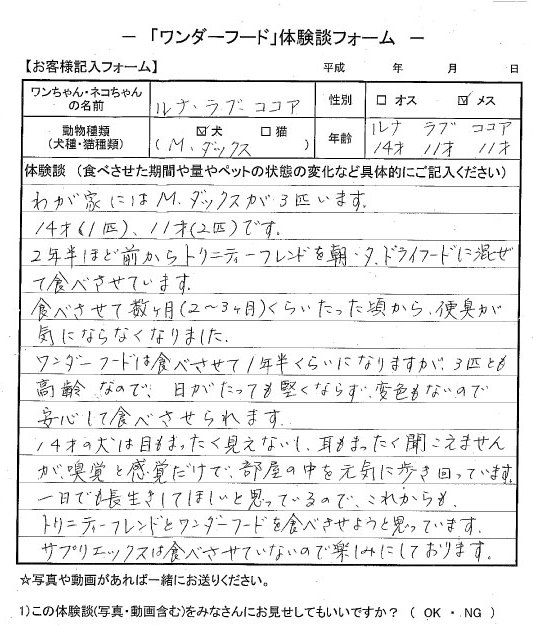 －「ワンダーフード」体験談フォーム－
【お客様記入フォーム】 平成 年 月 日
ワンちゃん・ネコちゃんの名前 ルナ・ラブ・ココア 性別 □ オス ☑ メス
動物種類（犬種・猫種類） ☑ 犬 □ 猫 （M、ダックス） 年齢 ルナ ラブ ココア 14才 11才 11才
体験談（食べさせた期間や量やペットの状態の変化など具体的にご記入ください）
わが家にはM、ダックスが3匹います。
14才（1匹）、11才（2匹）です。
2年半ほど前からトリニティーフレンドを朝・夕、ドライフードに混ぜ
て食べさせています。
食べさせて数ヶ月（2～3ヶ月）くらいたった頃から、便臭が
気にならなくなりました。
ワンダーフードは食べさせて1年半くらいになりますが、3匹とも
高齢なので、日がたっても堅くならず、変色もないので
安心して食べさせられます。
14才の犬は目もまったく見えないし、耳もまったく聞こえません
が、嗅覚と感覚だけで、部屋の中を元気に歩き回っています。
一日でも長生きしてほしいと思っているので、これからも、
トリニティーフレンドとワンダーフードを食べさせようと思っています。
サプリエックスは食べさせていないので楽しみにしております。
☆写真や動画があれば一緒にお送りください。
1）この体験談（写真・動画含む）をみなさんにお見せしてもいいですか？（ OK ・ NG ）